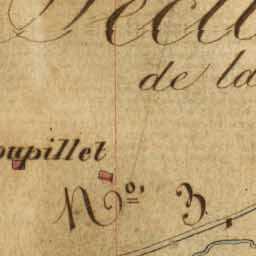 de la
oupillet
Nº. 3.